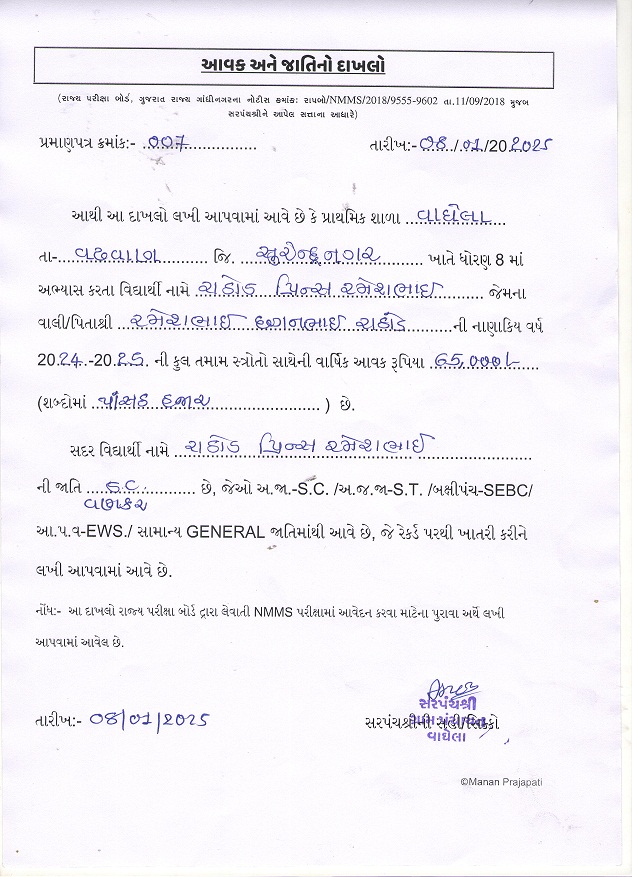 આવક અને જાતિનો દાખલો
(રાજ્ય પરીક્ષા બોર્ડ, ગુજરાત રાજ્ય ગાંધીનગરના નોટીસ ક્રમાંક: રાપબો/NMMS/2018/9555-9602 તા.11/09/2018 મુજબ
સરપંચશ્રીને આપેલ સત્તાના આધારે)
પ્રમાણપત્ર ક્રમાંક:- 007 તારીખ:- 08/01/2025
આથી આ દાખલો લખી આપવામાં આવે છે કે પ્રાથમિક શાળા વાઘેલા
તા- વઢવાણ જિ. સુરેન્દ્રનગર ખાતે ધોરણ 8 માં
અભ્યાસ કરતા વિદ્યાર્થી નામે રાઠોડ પ્રિન્સ રમેશભાઈ જેમના
વાલી/પિતાશ્રી રમેશભાઈ છગનભાઈ રાઠોડ ની નાણાકિય વર્ષ
2024-2025. ની કુલ તમામ સ્ત્રોતો સાથેની વાર્ષિક આવક રૂપિયા 65,000/-
(શબ્દોમાં પાંસઠ હજાર ) છે.
સદર વિદ્યાર્થી નામે રાઠોડ પ્રિન્સ રમેશભાઈ
ની જાતિ S.C. છે, જેઓ અ.જા.-S.C. /અ.જ.જા-S.T. /બક્ષીપંચ-SEBC/
વણકર
આ.પ.વ-EWS./ સામાન્ય GENERAL જાતિમાંથી આવે છે, જે રેકર્ડ પરથી ખાતરી કરીને
લખી આપવામાં આવે છે.
નોંધ:- આ દાખલો રાજ્ય પરીક્ષા બોર્ડ દ્વારા લેવાતી NMMS પરીક્ષામાં આવેદન કરવા માટેના પુરાવા અર્થે લખી
આપવામાં આવેલ છે.
સરપંચશ્રી
તારીખ:- 08/01/2025 સરપંચશ્રીની સહી/સિક્કો
વાઘેલા
©Manan Prajapati